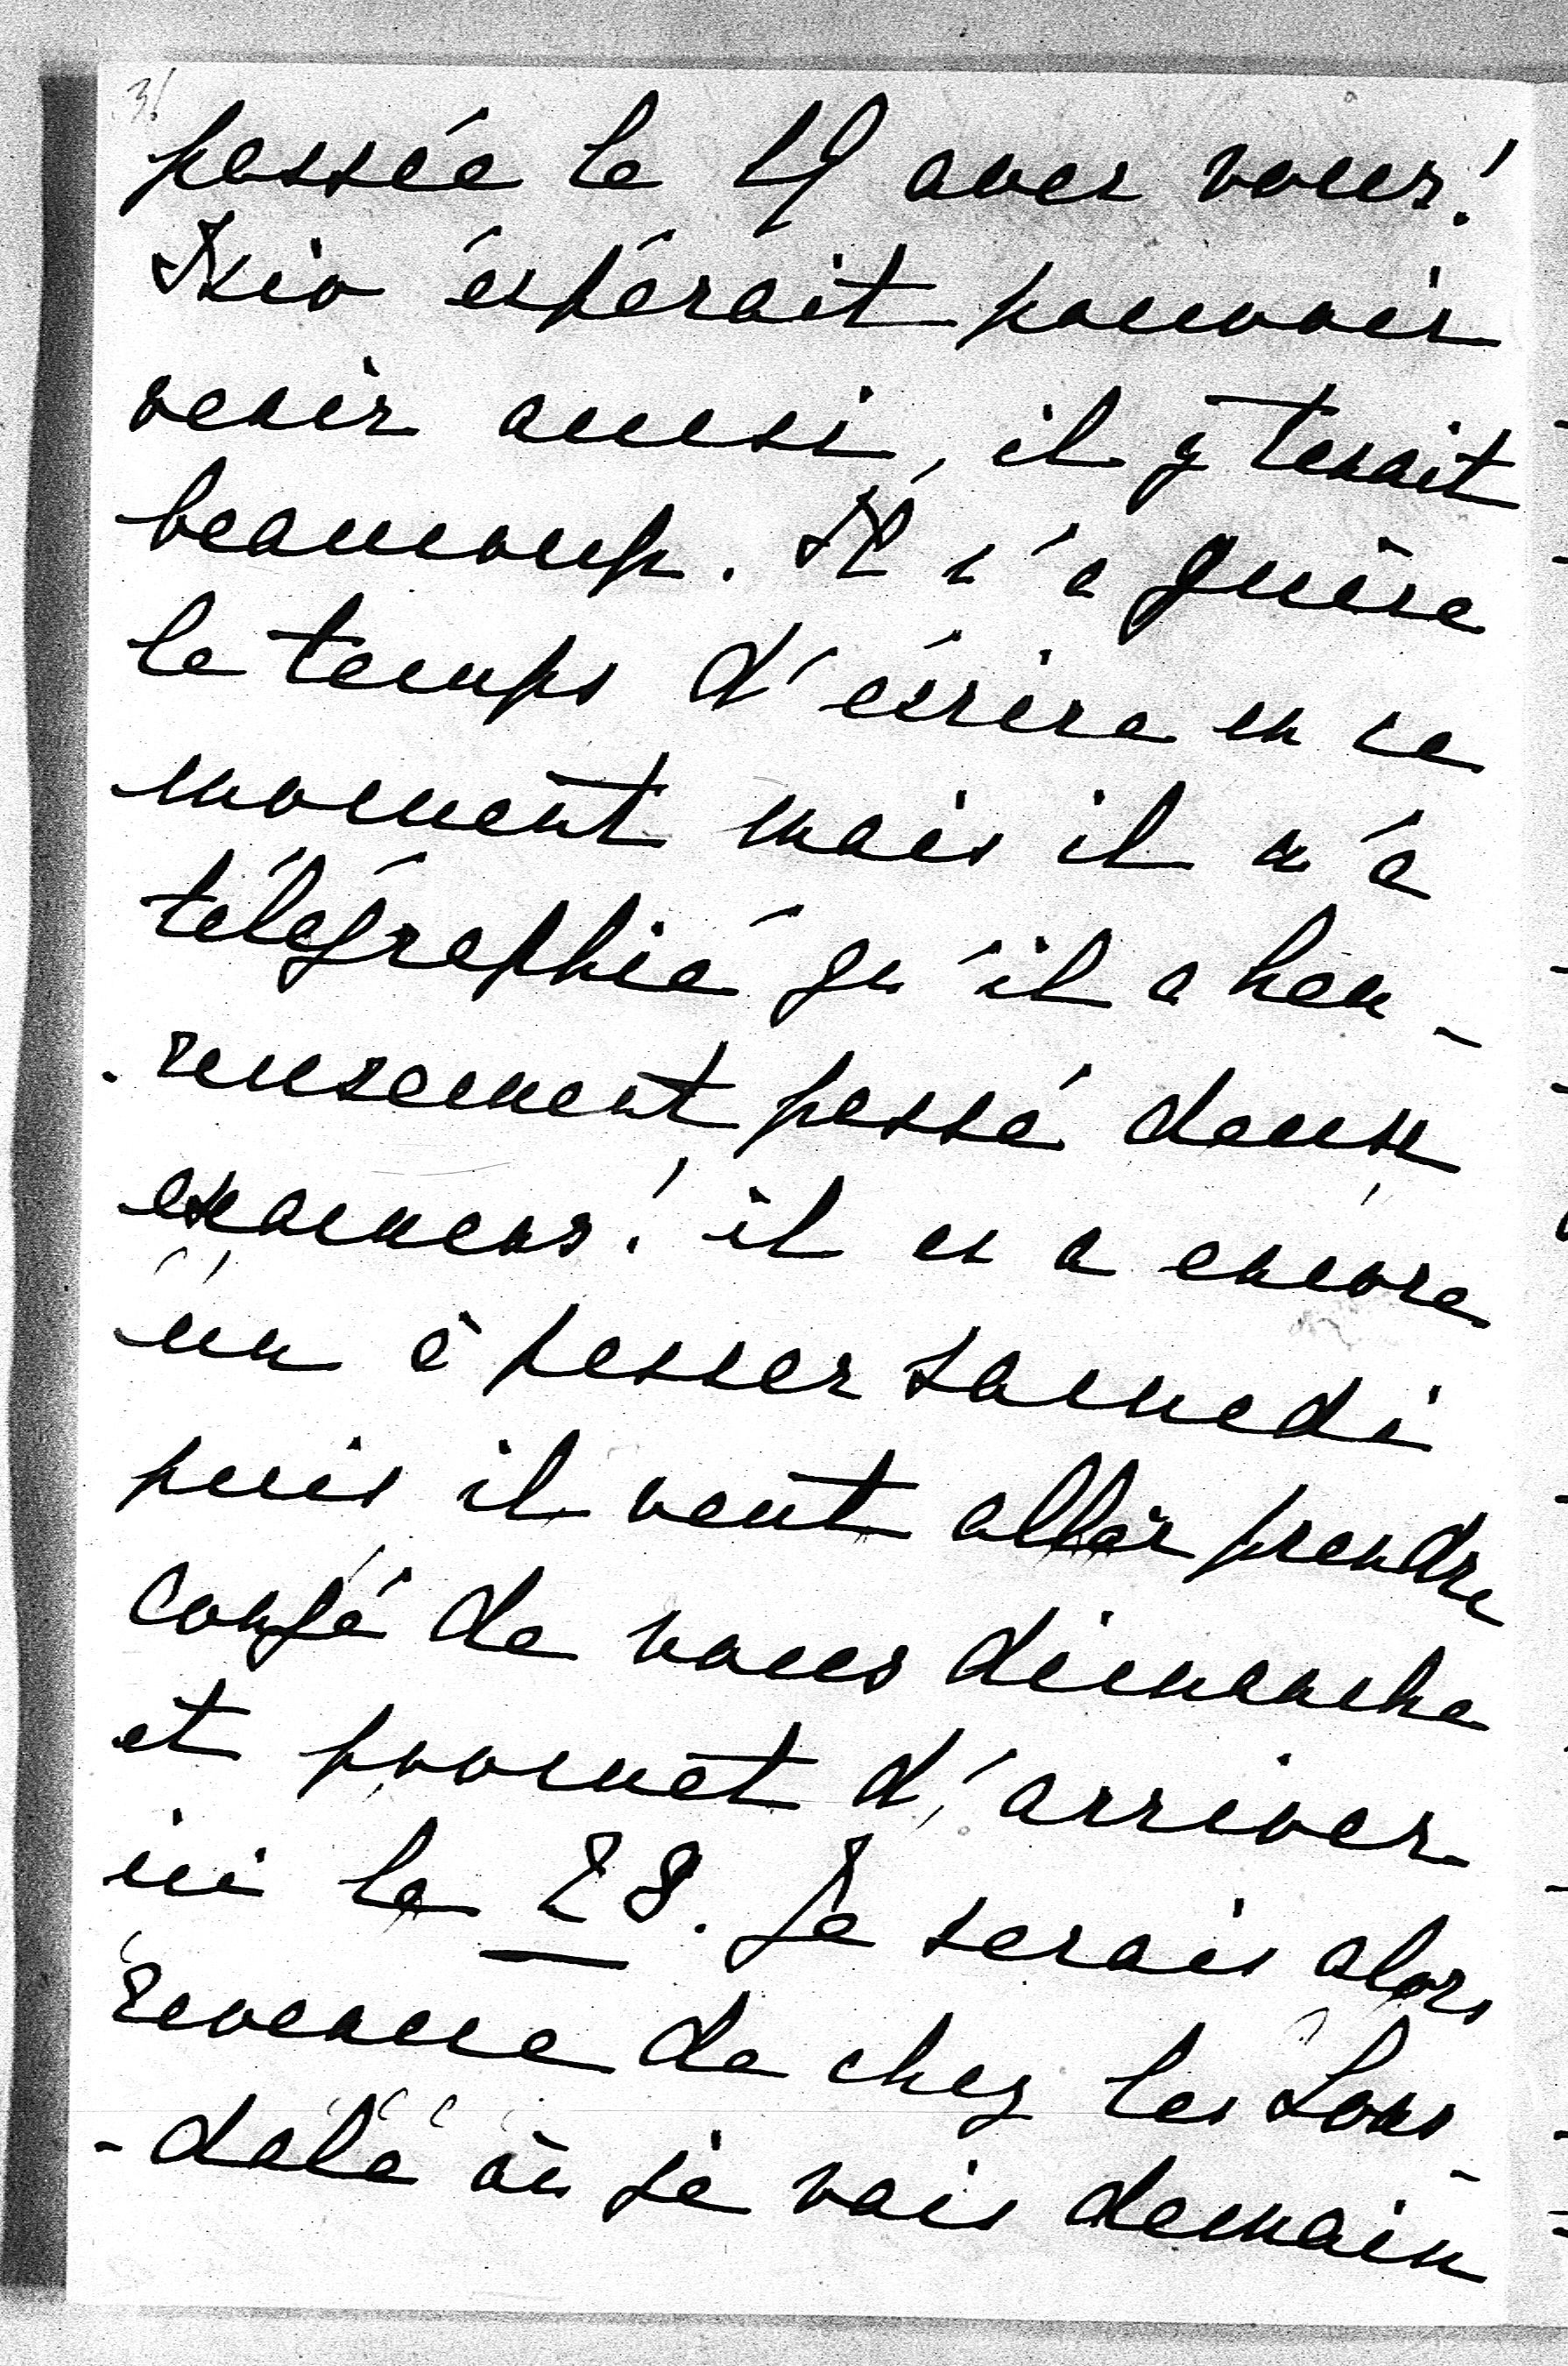 3/
passée le 19 avec vous!
Ixio éspérait pouvoir
venir aussi, il y tenait
beaucoup. Il n'a guère
le temps d'écrire en ce
moment mais il m'a
télégraphié qu'il a heu-
-reusement passé deux
examens! il en a encore
un à passer samedi
puis il veut aller prendre
congé de vous dimanche
et promet d'arriver
ici le 28. Je serais alors
revenue de chez les Lons-
-dale où je vais demain